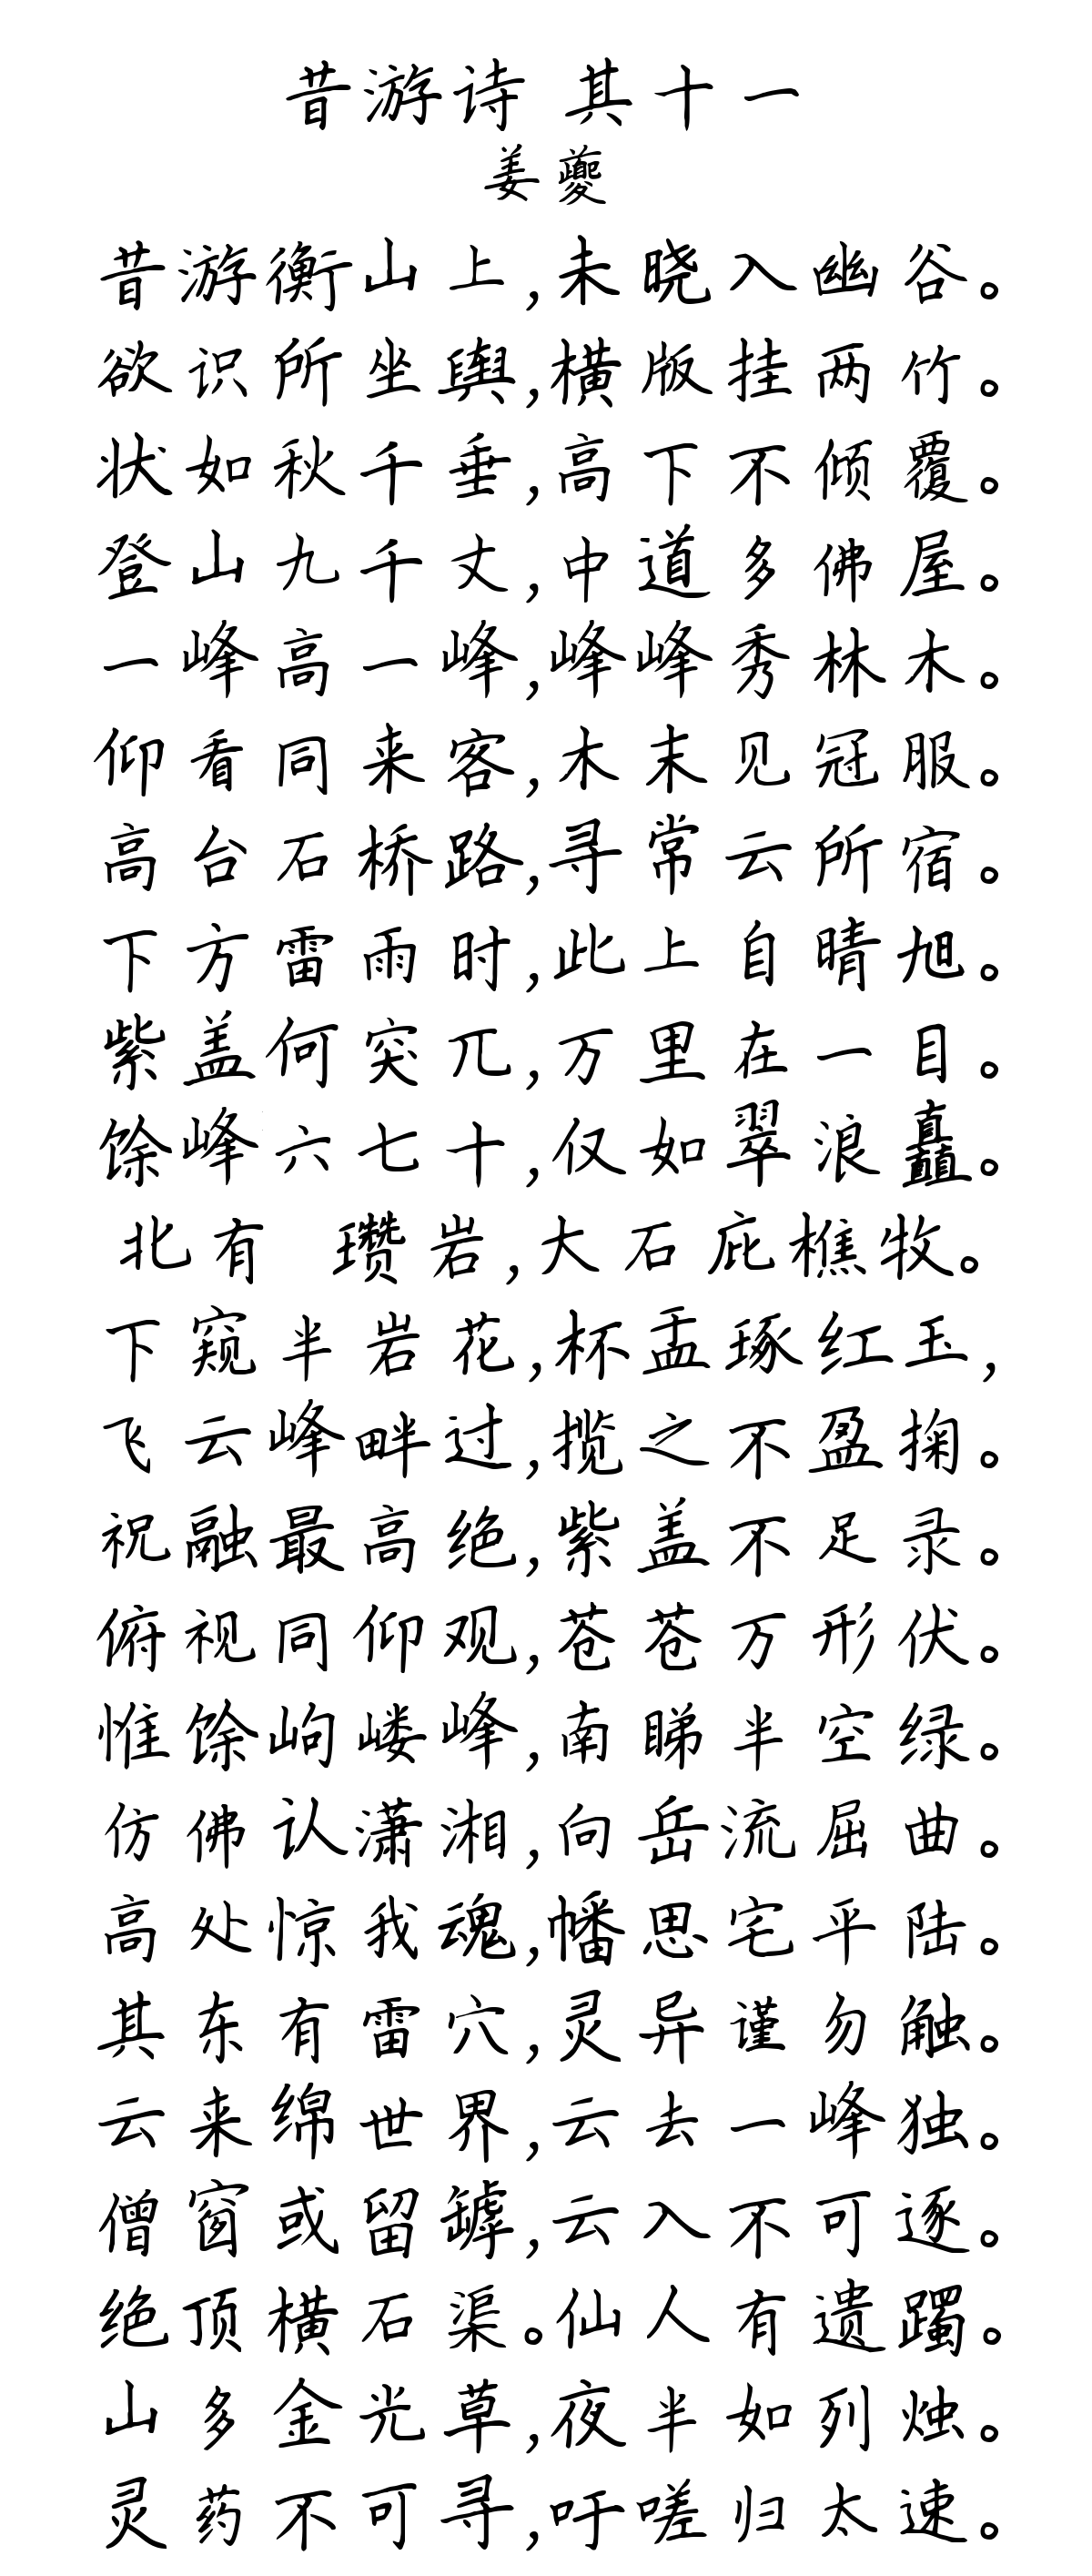 昔游诗 其十一
姜夔
昔游衡山上,未晓入幽谷。
欲识所坐舆,横版挂两竹。
状如秋千垂,高下不倾覆。
登山九千丈,中道多佛屋。
一峰高一峰,峰峰秀林木。
仰看同来客,木末见冠服。
高台石桥路,寻常云所宿。
下方雷雨时,此上自晴旭。
紫盖何突兀,万里在一目。
馀峰六七十,仅如翠浪矗。
北有 瓒岩,大石庇樵牧。
下窥半岩花,杯盂琢红玉,
飞云峰畔过,揽之不盈掬。
祝融最高绝,紫盖不足录。
俯视同仰观,苍苍万形伏。
惟馀岣嵝峰,南睇半空绿。
仿佛认潇湘,向岳流屈曲。
高处惊我魂,幡思宅平陆。
其东有雷穴,灵异谨勿触。
云来绵世界,云去一峰独。
僧窗或留罅,云入不可逐。
绝顶横石渠。仙人有遗躅。
山多金光草,夜半如列烛。
灵药不可寻,吁嗟归太速。